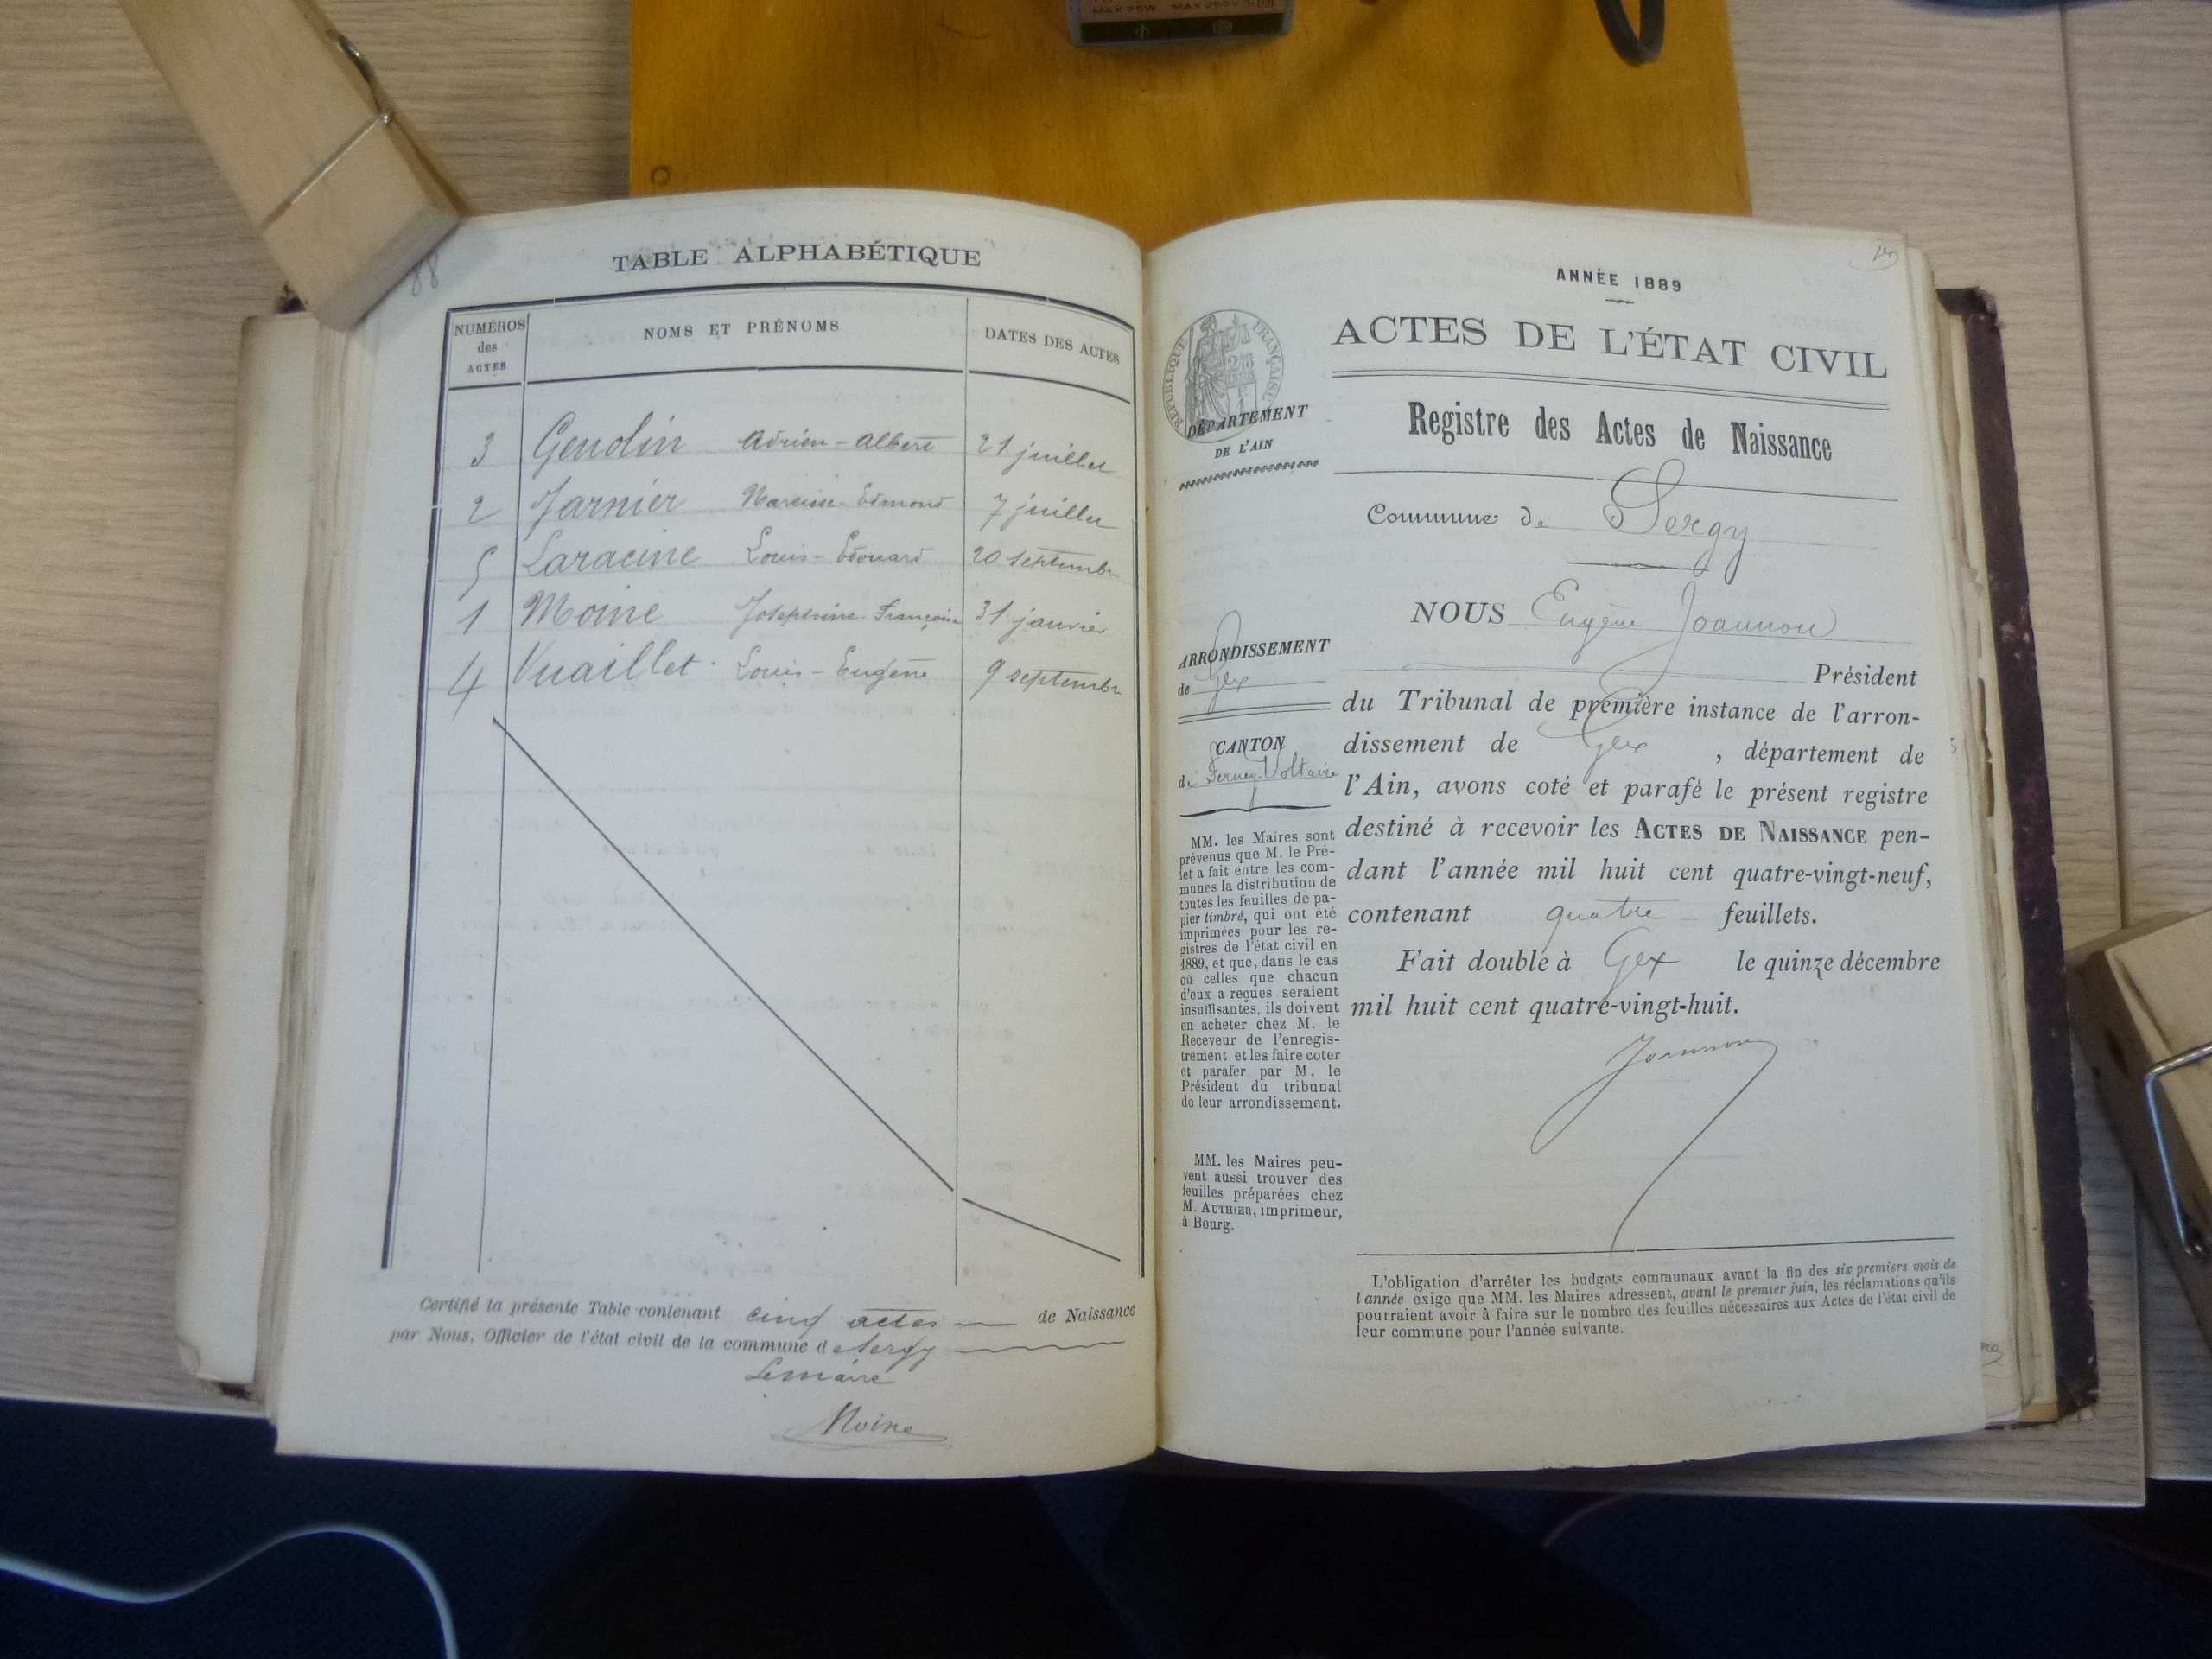 MAX 75W MAX 250V
88
TABLE ALPHABÉTIQUE
NUMÉROS
des
ACTES
NOMS ET PRÉNOMS
DATES DES ACTES
3 Gendin Adrien-Albert 21 juillet
2 Jarnier Narcisse-Edmond 7 juillet
5 Laracine Louis-Edouard 20 septembre
1 Moine Joséphine-Françoise 31 janvier
4 Vuaillet Louis-Eugène 9 septembre
Certifié la présente Table contenant cinq actes de Naissance
par Nous, Officier de l'état civil de la commune de Sergy
Lemaire
Moine
ANNÉE 1889
ACTES DE L'ÉTAT CIVIL
RÉPUBLIQUE FRANÇAISE
DÉPARTEMENT
DE L'AIN
Registre des Actes de Naissance
Commune de Sergy
NOUS Eugène Joannon
Président
du Tribunal de première instance de l'arron-
dissement de Gex, département de
l'Ain, avons coté et parafé le présent registre
destiné à recevoir les ACTES DE NAISSANCE pen-
dant l'année mil huit cent quatre-vingt-neuf,
contenant quatre feuillets.
Fait double à Gex le quinze décembre
mil huit cent quatre-vingt-huit.
Joannon
ARRONDISSEMENT
de Gex
CANTON
de Ferney-Voltaire
MM. les Maires sont
prévenus que M. le Pré-
fet a fait entre les com-
munes la distribution de
toutes les feuilles de pa-
pier timbré, qui ont été
imprimées pour les re-
gistres de l'état civil en
1889, et que, dans le cas
où celles que chacun
d'eux a reçues seraient
insuffisantes, ils doivent
en acheter chez M. le
Receveur de l'enregis-
trement et les faire coter
et parafer par M. le
Président du tribunal
de leur arrondissement.
MM. les Maires peu-
vent aussi trouver des
feuilles préparées chez
M. AUTHIER, imprimeur,
à Bourg.
L'obligation d'arrêter les budgets communaux avant la fin des six premiers mois de
l'année exige que MM. les Maires adressent, avant le premier juin, les réclamations qu'ils
pourraient avoir à faire sur le nombre des feuilles nécessaires aux Actes de l'état civil de
leur commune pour l'année suivante.